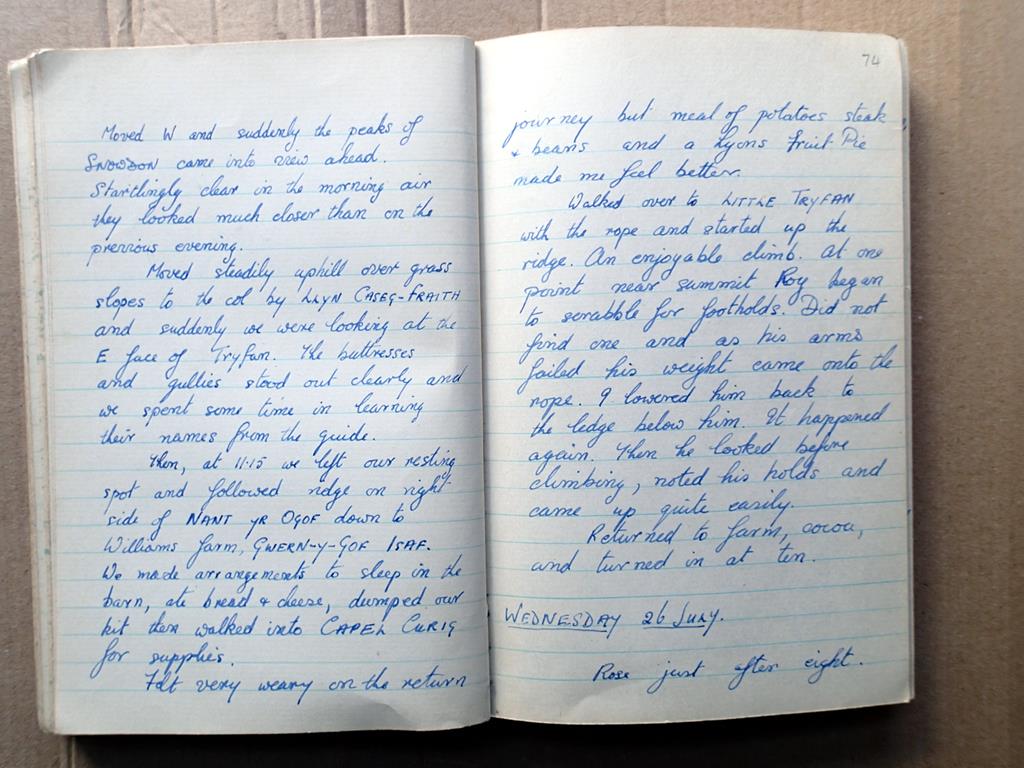 Moved W and suddenly the peaks of
SNOWDON came into view ahead.
Startlingly clear in the morning air
they looked much closer than on the
previous evening.
Moved steadily uphill over grass
slopes to the col by LLYN CASEG-FRAITH
and suddenly we were looking at the
E face of Tryfan. The buttresses
and gullies stood out clearly and
we spent some time in learning
their names from the guide.
Then, at 11.15 we left our resting
spot and followed ridge on right
side of NANT YR OGOF down to
Williams farm, GWERN-Y-GOF ISAF.
We made arrangements to sleep in the
barn, ate bread & cheese, dumped our
kit then walked into CAPEL CURIG
for supplies.
Felt very weary on the return
74
journey but meal of potatoes steak
& beans and a Lyons Fruit Pie
made me feel better.
Walked over to LITTLE TRYFAN
with the rope and started up the
ridge. An enjoyable climb. At one
point near summit Roy began
to scrabble for footholds. Did not
find one and as his arms
failed his weight came onto the
rope. I lowered him back to
the ledge below him. It happened
again. Then he looked before
climbing, noted his holds and
came up quite easily.
Returned to farm, cocoa,
and turned in at ten.
WEDNESDAY 26 JULY.
Rose just after eight.